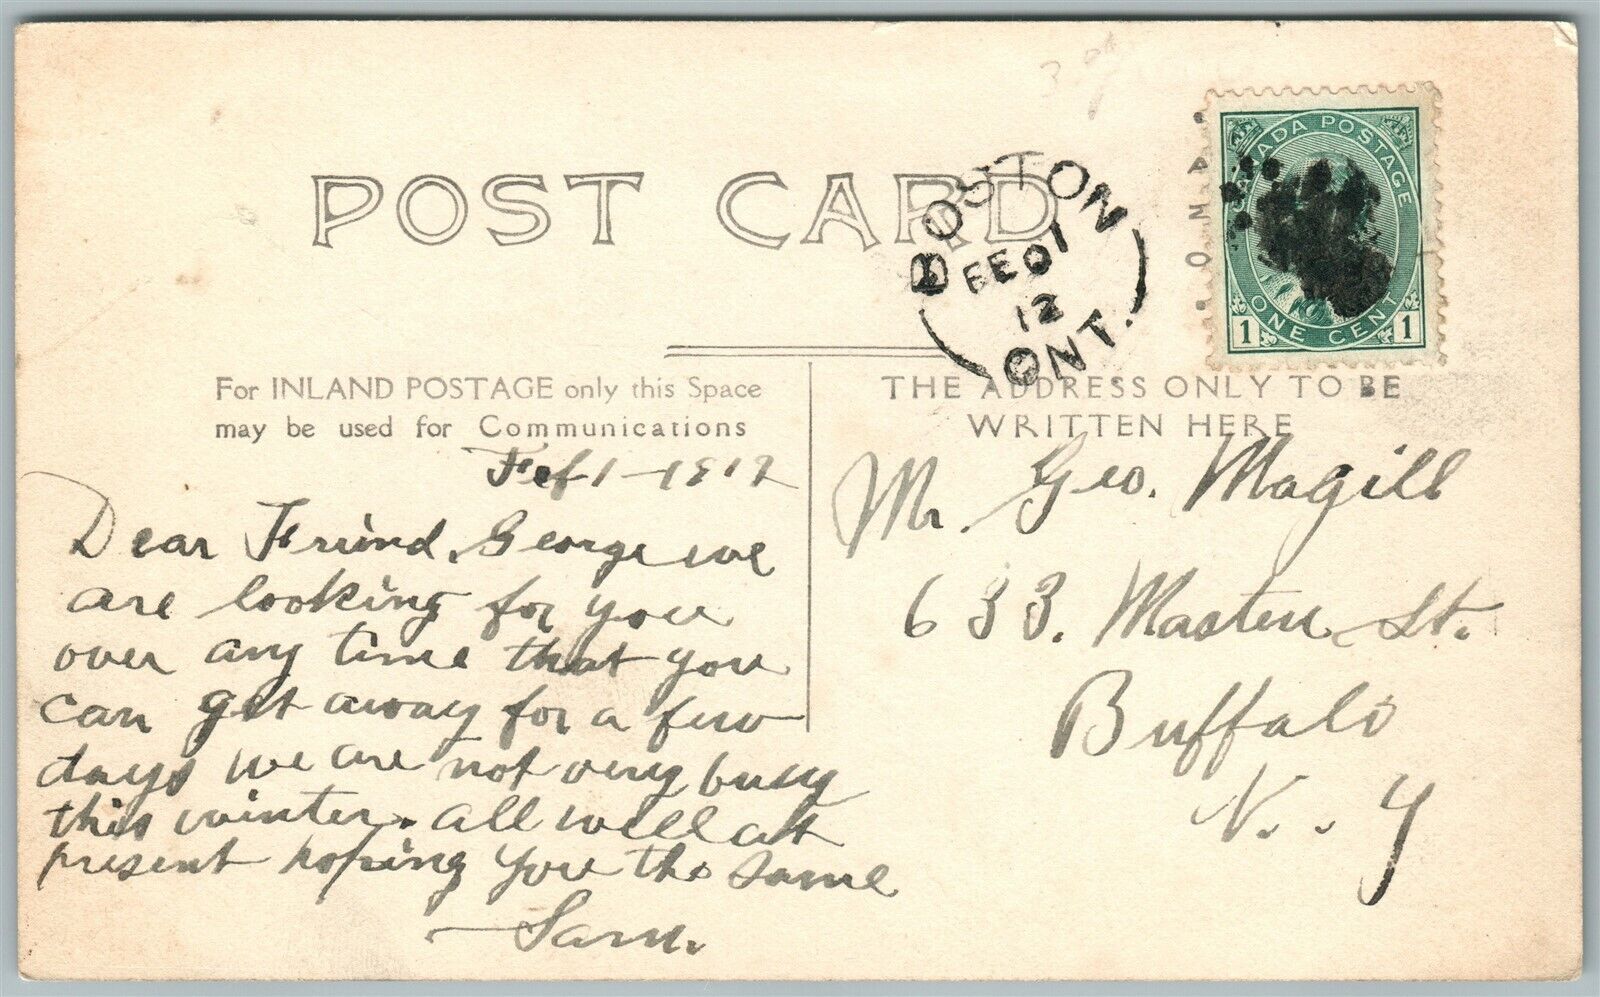 3.00
POST CARD
BOSTON
FE 01
12
ONT.
CANADA POSTAGE
ONE CENT
1 1
For INLAND POSTAGE only this Space
may be used for Communications
THE ADDRESS ONLY TO BE
WRITTEN HERE
Feb 1 - 1912
Dear Friend, George we
are looking for you
over any time that you
can get away for a few
days we are not very busy
this winter. all well at
present hoping you the same
Sam.
Mr. Geo. Magill
633. Masten St.
Buffalo
N. Y